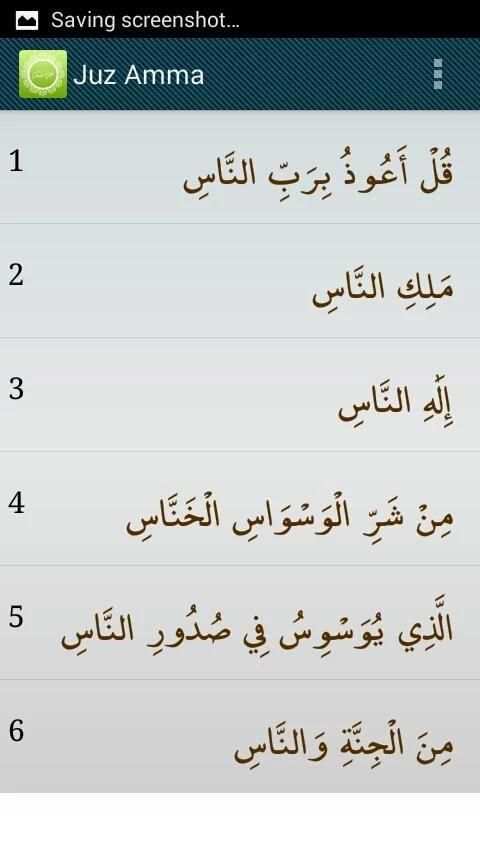 Saving screenshot...
Juz Amma
1 قُلْ أَعُوذُ بِرَبِّ النَّاسِ
2 مَلِكِ النَّاسِ
3 إِلَٰهِ النَّاسِ
4 مِنْ شَرِّ الْوَسْوَاسِ الْخَنَّاسِ
5 الَّذِي يُوَسْوِسُ فِي صُدُورِ النَّاسِ
6 مِنَ الْجِنَّةِ وَالنَّاسِ